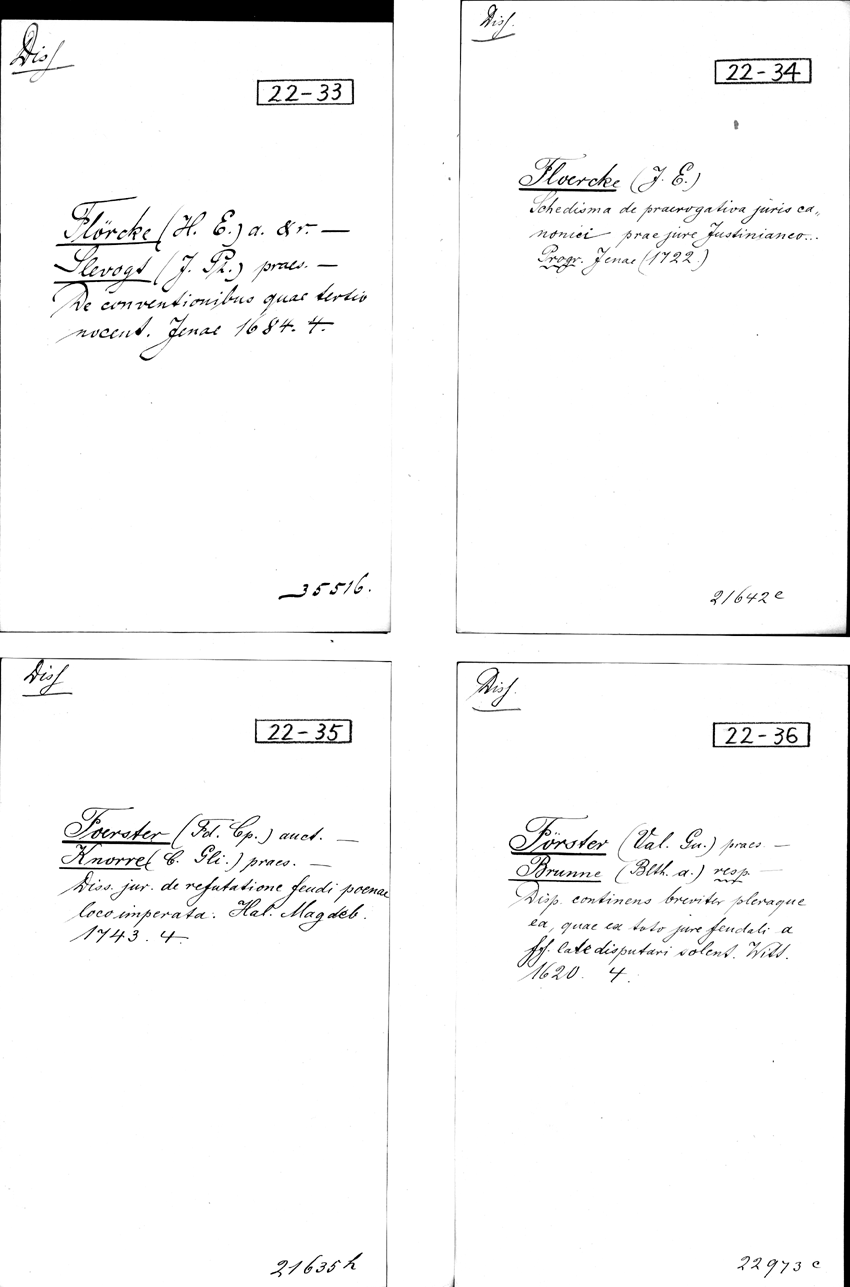 Diss
22-33
Flörcke (H. E.) a. & r. —
Slevogt (J. Ph.) praes. —
De conventionibus quae tertio
nocent. Jenae 1684. 4.
35516.
Diss.
22-34
Floercke (J. E.)
Schedisma de praerogativa juris ca„
nonici prae jure Justinianeo...
Progr. Jenae (1722.)
21642 c
Diss
22-35
Foerster (Fd. Cp.) auct. —
Knorre (C. Gli.) praes. —
Diss. jur. de refutatione feudi poenae
loco imperata. Hal. Magdeb.
1743. 4.
21635 h
Diss.
22-36
Förster (Val. Gu.) praes. —
Brunne (Blth. a.) resp. —
Disp. continens breviter pleraque
ea, quae ex toto jure feudali a
ff. late disputari solent. Witt.
1620. 4.
22973 c